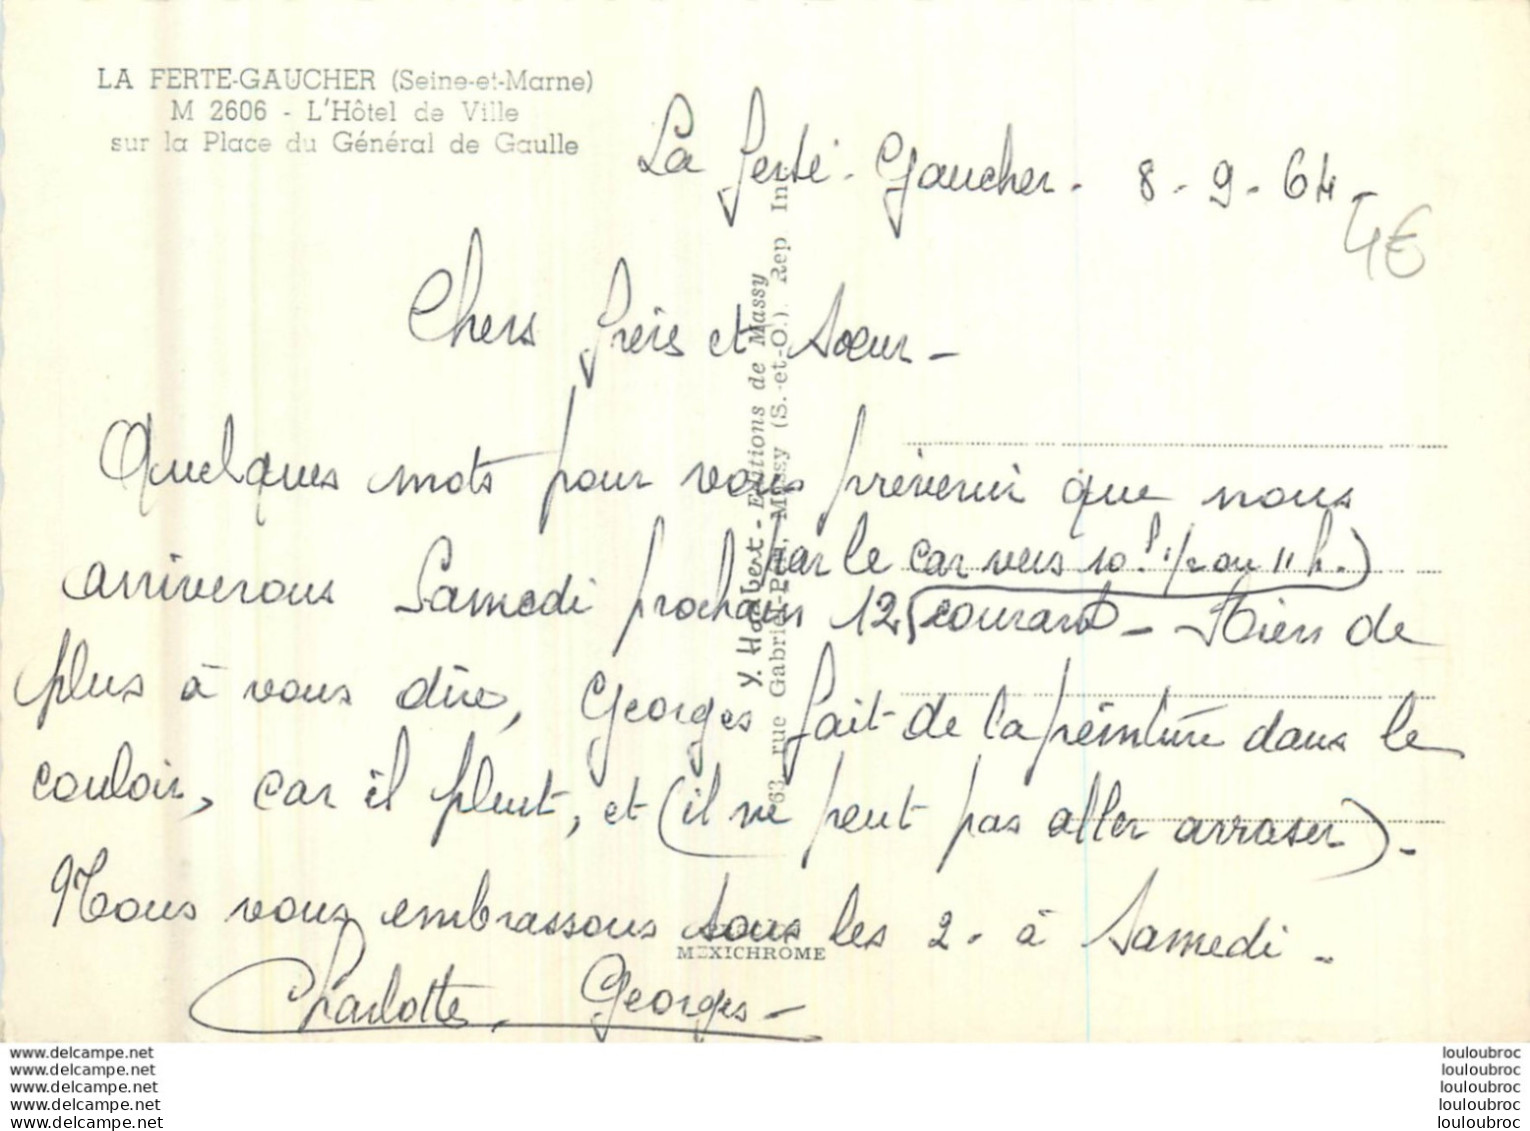 LA FERTE-GAUCHER (Seine-et-Marne)
M 2606 - L'Hôtel de Ville
sur la Place du Général de Gaulle
La Ferté-Gaucher - 8-9-64-
4€
Chers frère et Sœur -
Quelques mots pour vous prévenir que nous
par le car vers 10h 1/2 ou 11 h.)
arriverons Samedi prochain 12 courant - Rien de
plus à vous dire, Georges fait de la peinture dans le
couloir, car il pleut, et (il ne peut pas aller arraser) -
Nous vous embrassons tous les 2 - à Samedi -
Charlotte. Georges -
Y. Habert - Editions de Massy
63, rue Gabriel-Péri, Massy (S.-et-O.). Rep Int.
MEXICHROME
www.delcampe.net
www.delcampe.net
www.delcampe.net
www.delcampe.net
www.delcampe.net
louloubroc
louloubroc
louloubroc
louloubroc
louloubroc